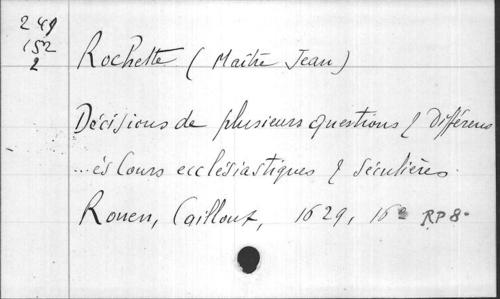 249
152
2
Rochette (Maître Jean)
Décisions de plusieurs questions & différens
...ès Cours ecclésiastiques & séculières.
Rouen, Caillout, 1629, 16º RP 8-